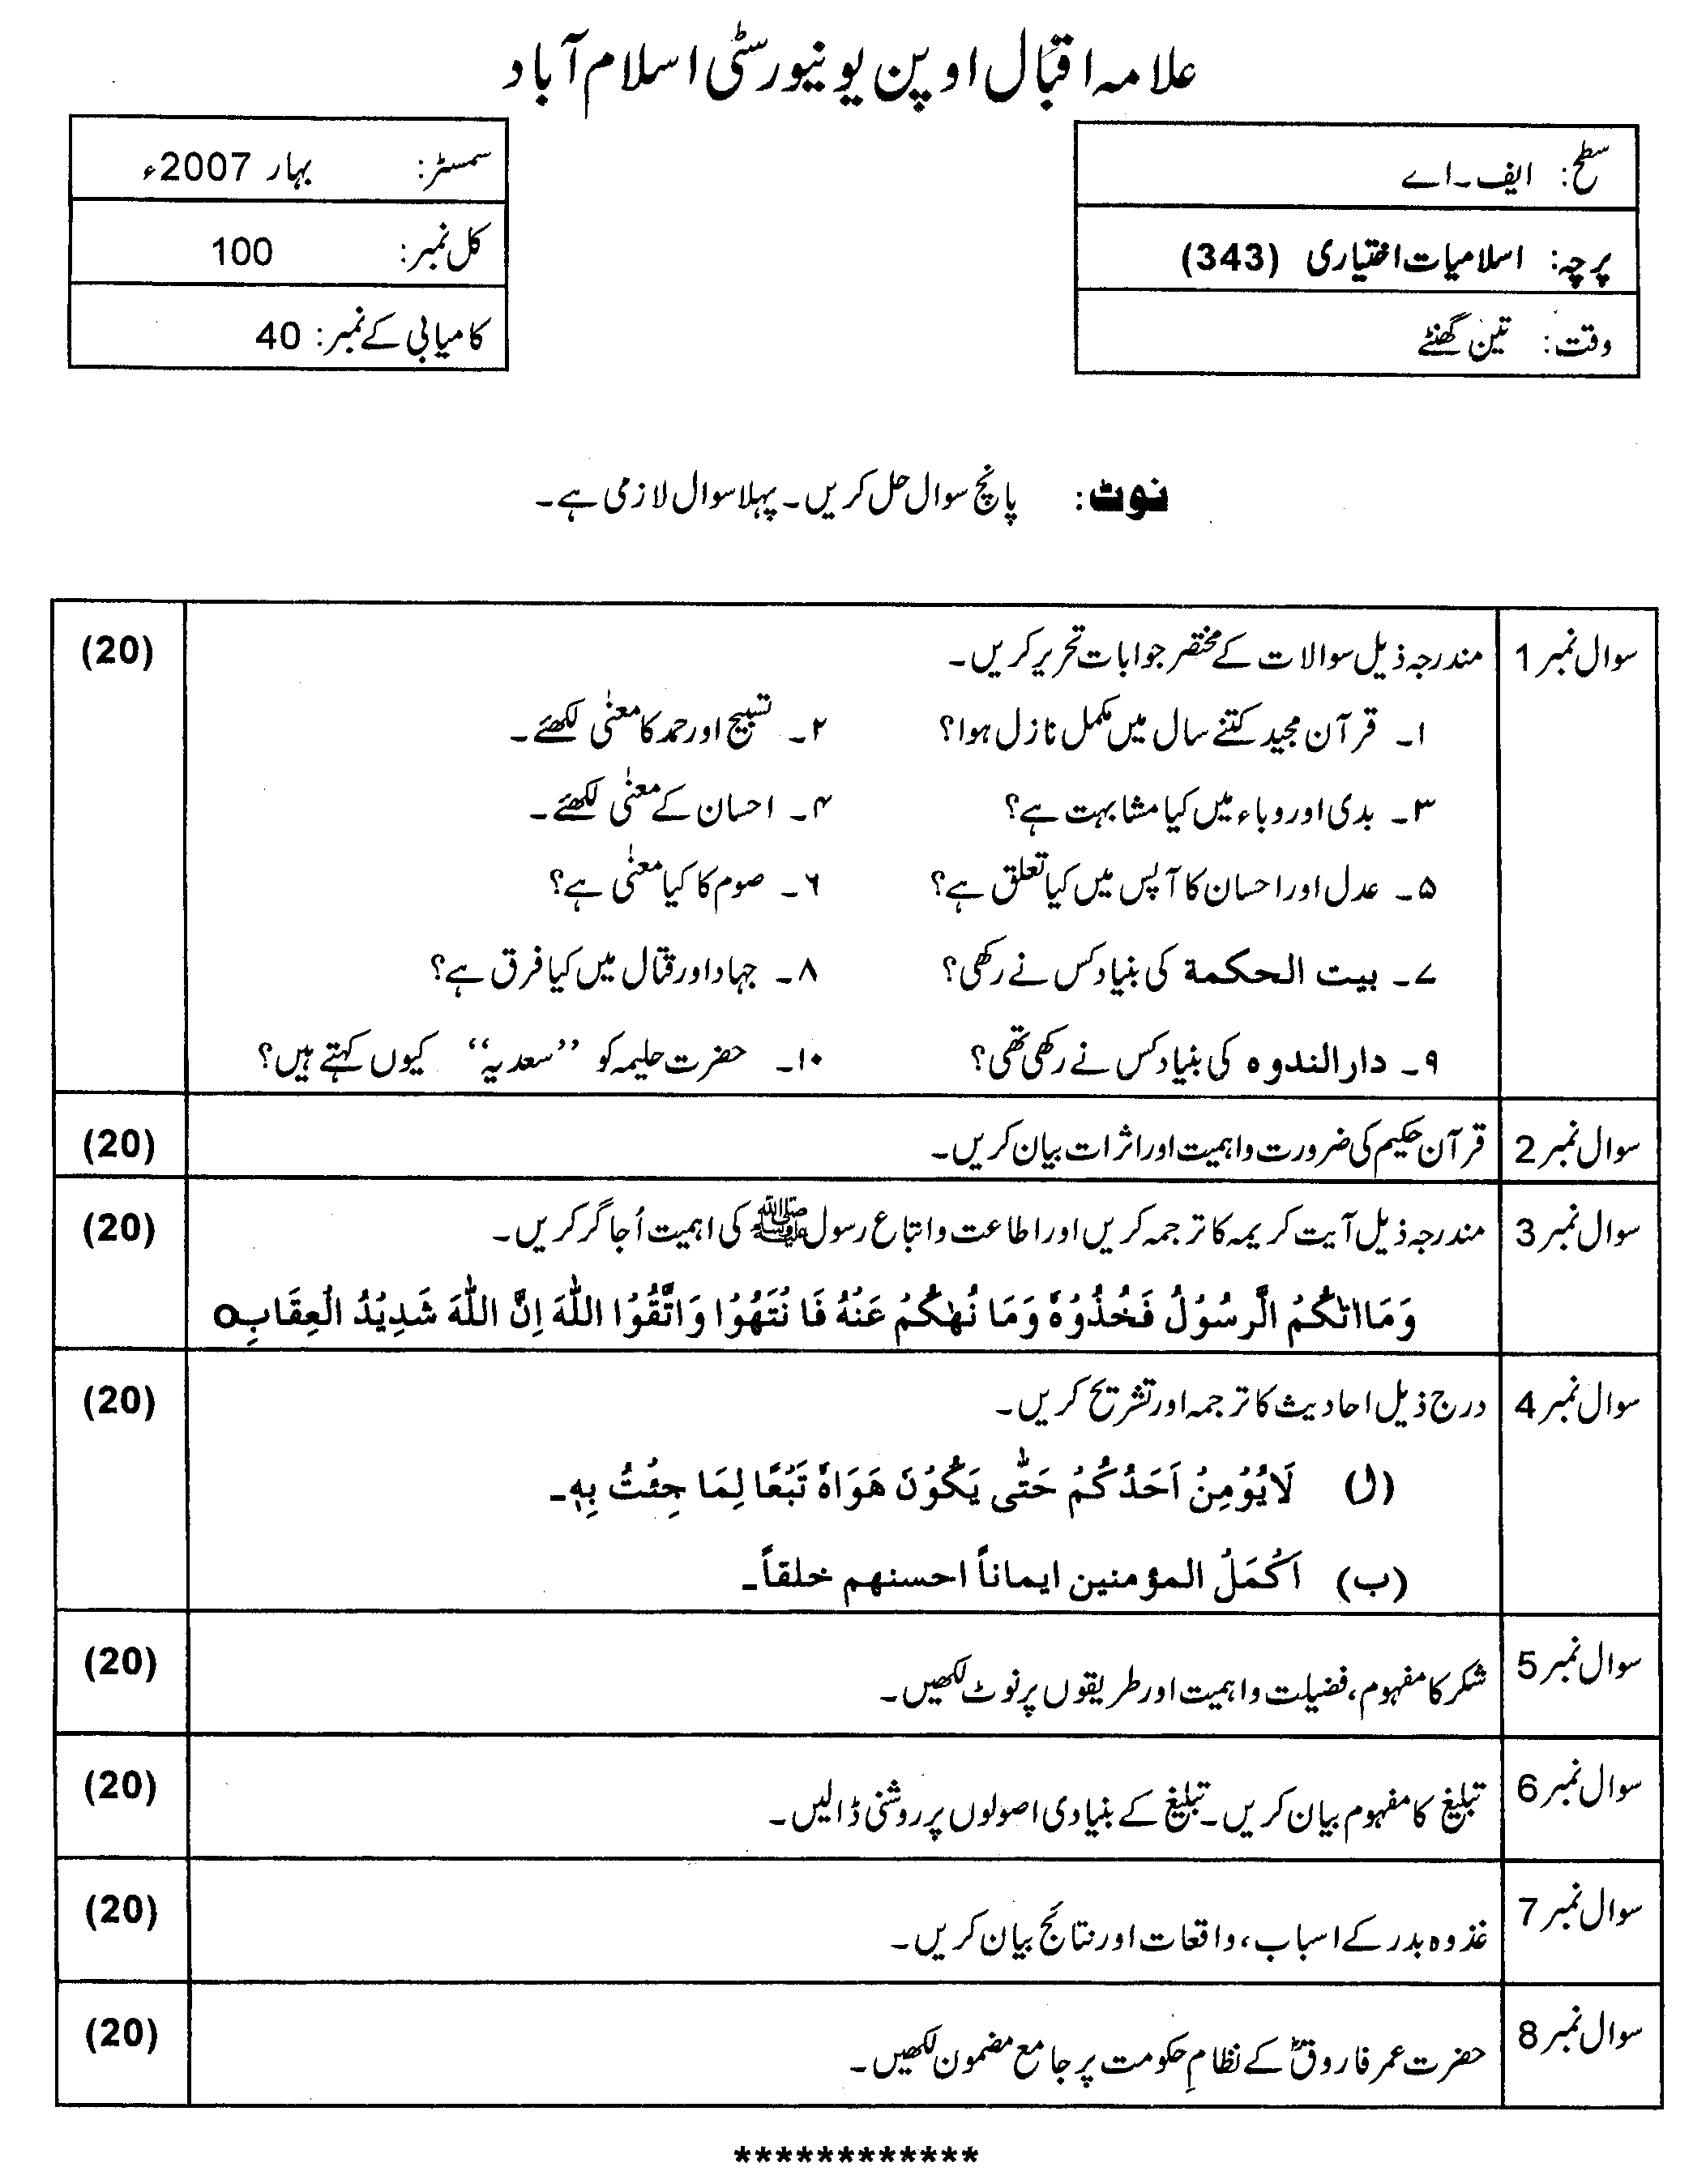 علامہ اقبال اوپن یونیورسٹی اسلام آباد
سطح: ایف۔اے
سمسٹر: بہار 2007ء
پرچہ: اسلامیات اختیاری (343)
کل نمبر: 100
وقت: تین گھنٹے
کامیابی کے نمبر: 40
نوٹ: پانچ سوال حل کریں۔ پہلا سوال لازمی ہے۔
سوال نمبر 1 مندرجہ ذیل سوالات کے مختصر جوابات تحریر کریں۔ (20)
۱۔ قرآن مجید کتنے سال میں مکمل نازل ہوا؟ ۲۔ تسبیح اور حمد کا معنٰی لکھئے۔
۳۔ بدی اور وباء میں کیا مشابہت ہے؟ ۴۔ احسان کے معنٰی لکھئے۔
۵۔ عدل اور احسان کا آپس میں کیا تعلق ہے؟ ۶۔ صوم کا کیا معنٰی ہے؟
۷۔ بیت الحکمة کی بنیاد کس نے رکھی؟ ۸۔ جہاد اور قتال میں کیا فرق ہے؟
۹۔ دارالندوہ کی بنیاد کس نے رکھی تھی؟ ۱۰۔ حضرت حلیمہ کو ’’سعدیہ‘‘ کیوں کہتے ہیں؟
سوال نمبر 2 قرآن حکیم کی ضرورت و اہمیت اور اثرات بیان کریں۔ (20)
سوال نمبر 3 مندرجہ ذیل آیت کریمہ کا ترجمہ کریں اور اطاعت و اتباع رسول ﷺ کی اہمیت اُجاگر کریں۔ (20)
وَمَااٰتٰکُمُ الرَّسُوْلُ فَخُذُوْهُ وَمَا نَهٰکُمْ عَنْهُ فَانْتَهُوْا وَاتَّقُوْا اللّٰهَ اِنَّ اللّٰهَ شَدِيْدُ الْعِقَابِo
سوال نمبر 4 درج ذیل احادیث کا ترجمہ اور تشریح کریں۔ (20)
(ا) لَايُؤْمِنُ اَحَدُكُمْ حَتّٰى يَكُوْنَ هَوَاهُ تَبْعًا لِمَا جِئْتُ بِهٖ۔
(ب) اَكْمَلُ المؤمنین ایماناً احسنهم خلقاً۔
سوال نمبر 5 شکر کا مفہوم، فضیلت و اہمیت اور طریقوں پر نوٹ لکھیں۔ (20)
سوال نمبر 6 تبلیغ کا مفہوم بیان کریں۔ تبلیغ کے بنیادی اصولوں پر روشنی ڈالیں۔ (20)
سوال نمبر 7 غزوہ بدر کے اسباب، واقعات اور نتائج بیان کریں۔ (20)
سوال نمبر 8 حضرت عمر فاروقؓ کے نظامِ حکومت پر جامع مضمون لکھیں۔ (20)
************